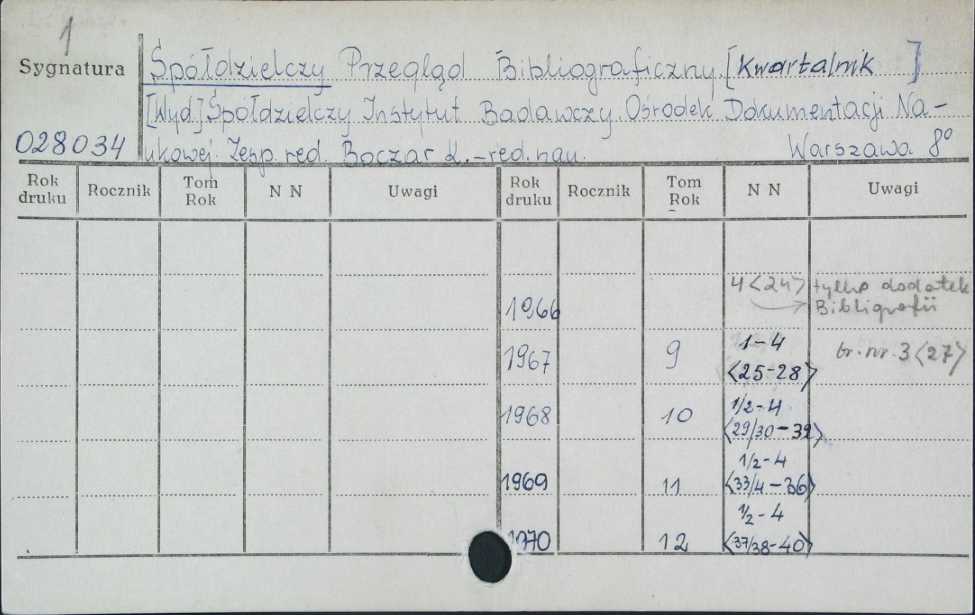 1
Sygnatura
Spółdzielczy Przegląd Bibliograficzny. [Kwartalnik]
[Wyd] Spółdzielczy Instytut Badawczy. Ośrodek Dokumentacji Na-
028034
ukowej. Zesp. red. Boczar K. - red. nau. Warszawa 8°
Rok druku Rocznik Tom Rok N N Uwagi Rok druku Rocznik Tom Rok N N Uwagi
4<24> tylko dodatek
1966 Bibliografii
1967 9 1-4 br. nr. 3<27>
<25-28>
1968 10 1/2-4
<29/30-32>
1969 11 1/2-4
<33/4-36>
1970 12 1/2-4
<37/38-40>